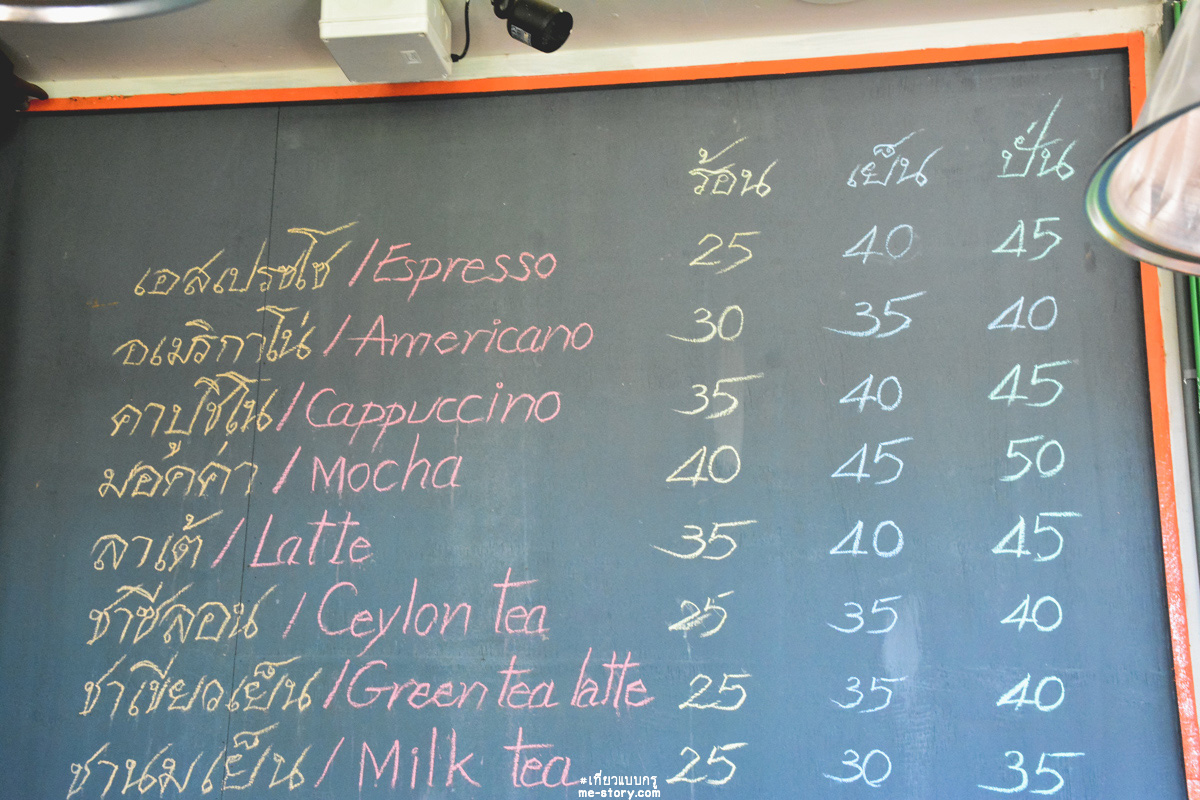 ร้อน เย็น ปั่น
เอสเปรซโซ่ / Espresso 25 40 45
อเมริกาโน่ / Americano 30 35 40
คาปูชิโน / Cappuccino 35 40 45
มอคค่า / Mocha 40 45 50
ลาเต้ / Latte 35 40 45
ชาซีลอน / Ceylon tea 25 35 40
ชาเขียวเย็น / Green tea latte 25 35 40
ชานมเย็น / Milk tea 25 30 35
#เที่ยวแบบกรู
me-story.com